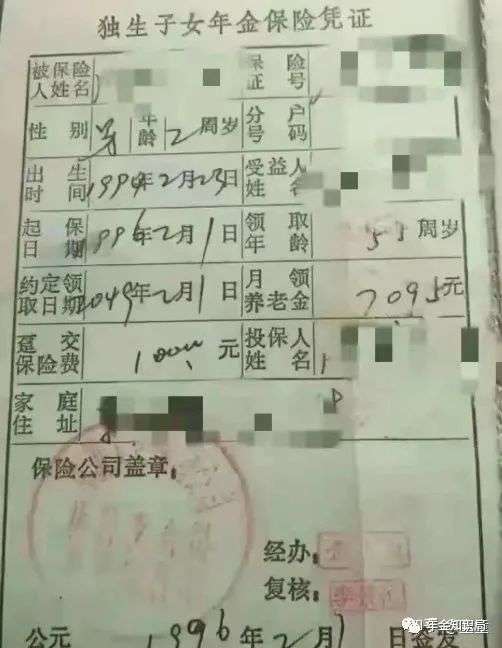 独生子女年金保险凭证
被保险人姓名 保险证号
性别 男 年龄 2周岁 分户号码
出生时间 1994年2月23日 受益人姓名
起保日期 1996年2月1日 领取年龄 55周岁
约定领取日期 2049年2月1日 月领养老金 7095元
趸交保险费 1000元 投保人姓名
家庭住址
保险公司盖章:
经办:
复核:
公元 1996年2月 日签发